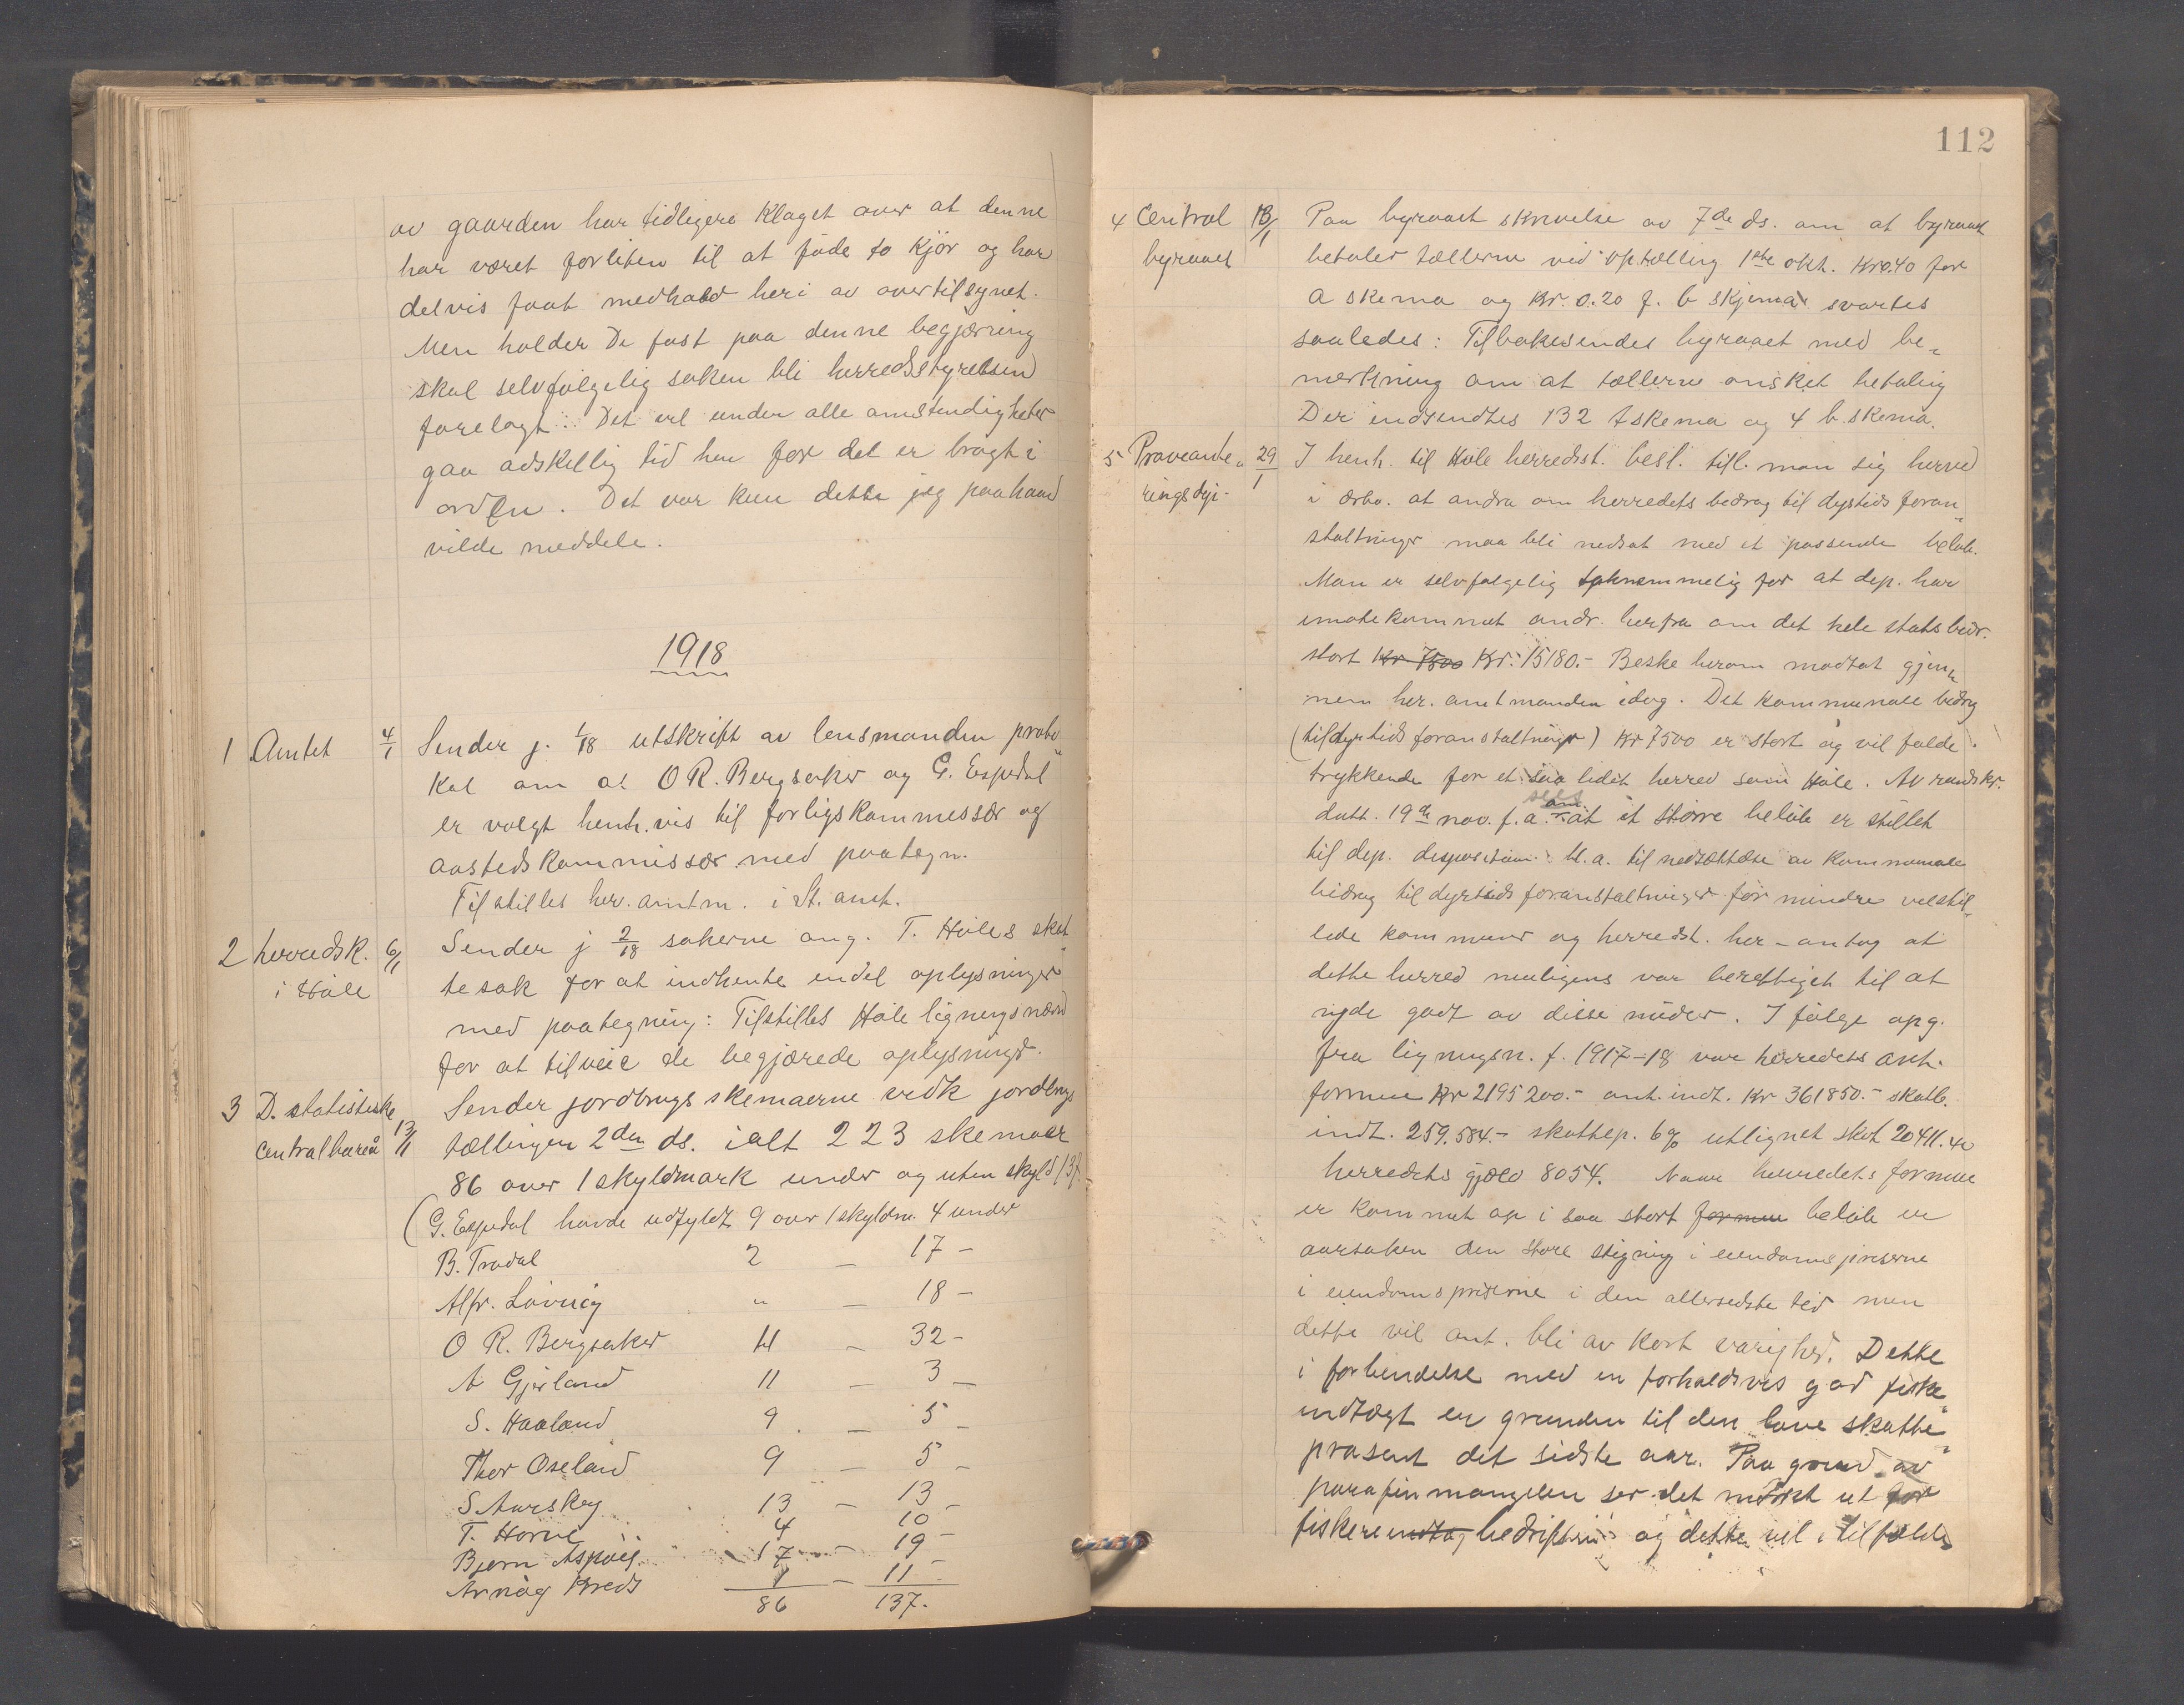 av gaarden har tidligere klaget over at denne
har været forliten til at føde to kjør og har
delvis faat medhold heri av overtilsynet.
Men holder De fast paa denne begjæring
skal selvfølgelig saken bli herredsstyrelsen
forelagt. Det vil under alle omstendigheter
gaa adskillig tid hen før det er bragt i
orden. Det var kun dette jeg paa haand
vilde meddele.
1918
1 Amtet 4/1 Sender j. 1/18 utskrift av lensmanden proto„
kol om at O R. Bergsaker og G. Espedal
er valgt henh.vis til forligskommessær og
aastedskommissær med paategn.
Tilstilles her. amtm. i St. amt.
2 herredsk. 6/1 Sender j 2/18 sakerne ang. T. Høles skat„
i Høle
te sak for at indhente endel oplysninger
med paategning: Tilstilles Høle ligningsnævnd
for at tilveie de begjærede oplysninger.
3 D. statistiske Sender jordbrugsskemaerne vedk jordbrugs
Centralbureå 13/1 tællingen 2den ds. ialt 223 skemaer
86 over 1 skyldmark under og uten skyld 137.
(G. Espedal havde udfyldt 9 over 1 skyldm. 4 under
B. Tradal 2 — 17 –
Alfr. Løvvig „ — 18 –
O R. Bergsaker 11 – 32 –
A Gjerland 11 — 3 —
S. Haaland 9 . — 5 –
Thor Oseland 9 — 5 –
S. Aarskog 13 – 13 –
T. Horve 4 10
Bjørn Aspøig 17 – 19 –
Arnøg Kreds 1 – 11 –
86 137.
112
4 Central 13/1 Paa byraaet skrivelse av 7de ds. om at byraaet
byraaet
betaler tællerne vid optælling 1ste okt. Kr 0.40 for
a skema og Kr. 0.20 f. b skjema svartes
saaledes: Tilbakesendes byraaet med be„
merkning om at tællerne ønsket betaling
Der indsendtes 132 A skema og 4 b. skema.
5 Proveante„ 29/1 I henh. til Høle herredsst. besl. till. man sig herved
ringsdir.
i ærbø. at andra om herredets bedrag til dyrtids foran„
staltninger maa bli nedsat med et passende beløb.
Man er selvfølgelig taknemmelig for at dep. har
imøtekommet andr. herfra om det hele statsbidr.
stort Kr 7500 Kr. 15180.– Beske herom modtat gjen„
nem her. amtmanden idag. Det kommunale bedrag
(til dyrtids foranstaltninger) Kr 7500 er stort og vil falde
trykkende for et saa lidet herred som Høle. Av rundskr.
datt. 19de nov. f. a. sees om at et større beløb er stillet
til dep. desposition bl. a. til nedsættelse av kommunale
bidrag til dyrtids foranstaltninger for mindre velstil„
lede kommuner og herredst. her antog at
dette herred muligens var berettiget til at
nyde godt av disse midler. I følge opg.
fra ligningsn. f. 1917–18 var herredets ant.
formue Kr 2195200.– ant. indt. Kr 361850.– skatb.
indt. 259.584.– skattep. 6% utlignet skat 20411.40
herredets gjæld 8054. Naar herredets formue
er kommet op i saa stort formue beløb er
aarsaken den store stigning i eiendomspriserne
i eiendomspriserne i den allersidste tid men
dette vil ant. bli av kort varighed. Dette
i forbindelse med en forholdsvis god fiske„
indtægt er grunden til den lave skatte„
prosent det sidste aar. Paa grund av
parafinmangelen ser det mørkt ut for
fiskere indtæg bedriften og dette vil i tilfælde